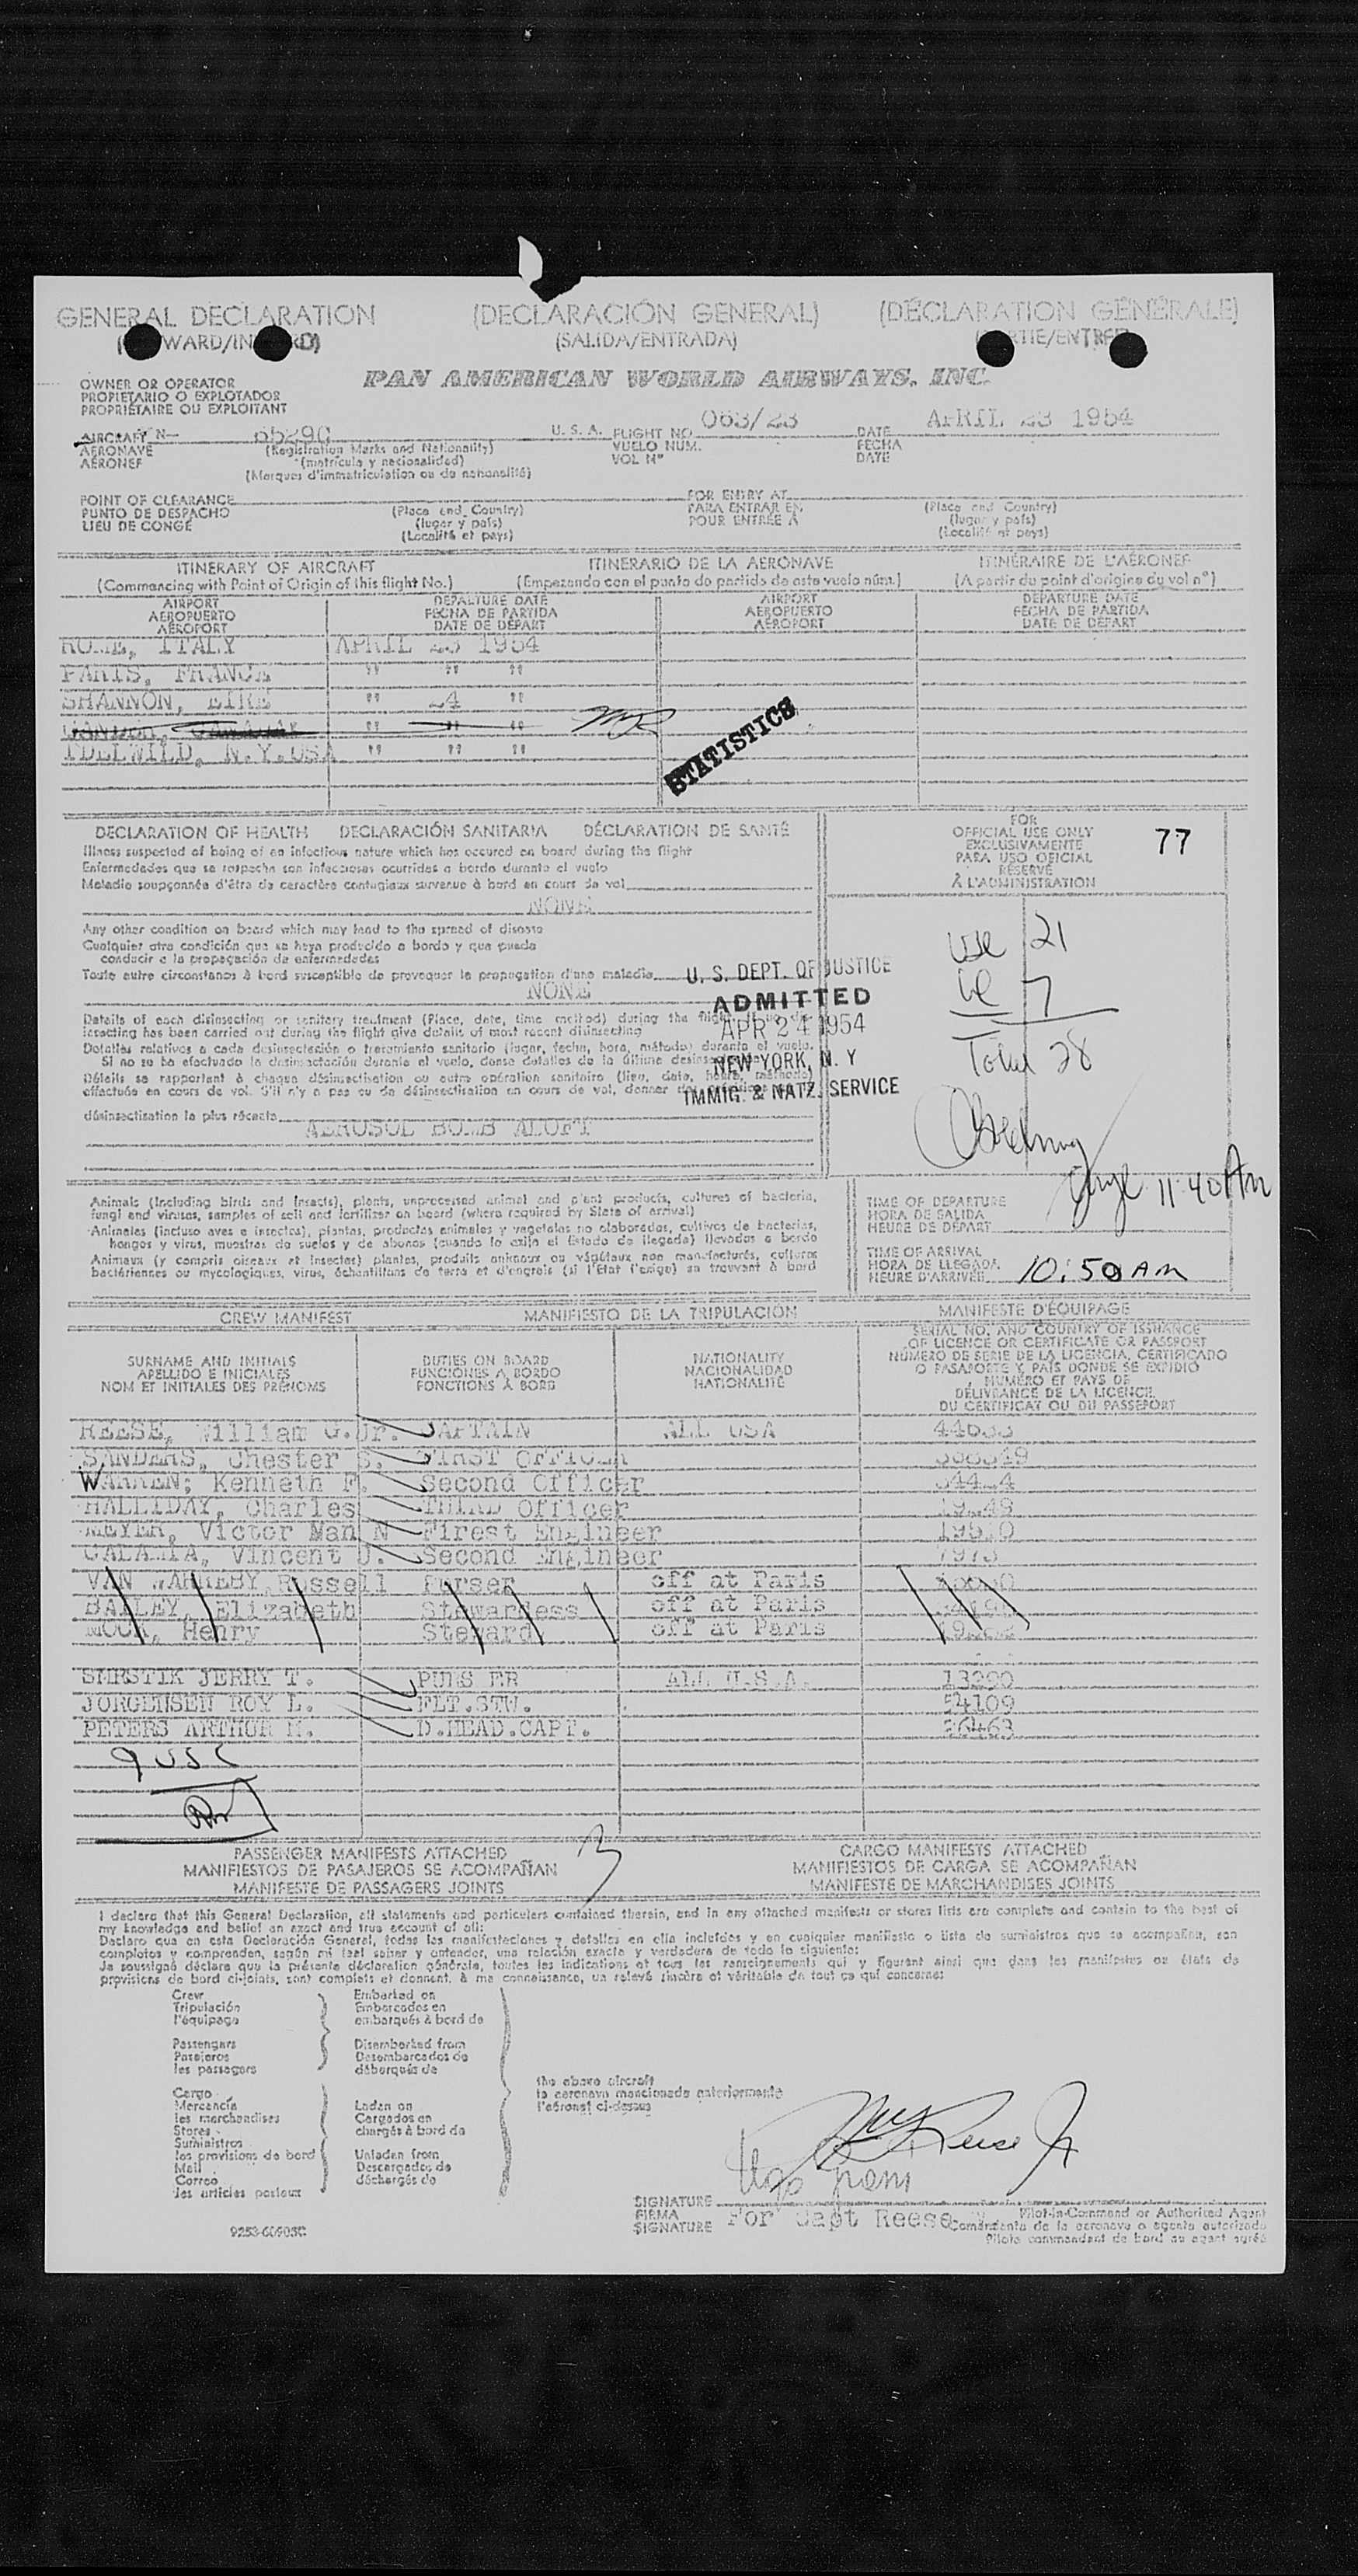 GENERAL DECLARATION (DECLARACIÓN GENERAL) (DÉCLARATION GÉNÉRALE)
(SALIDA/ENTRADA)
OWNER OR OPERATOR
PROPIETARIO O EXPLOTADOR
PROPRIÉTAIRE OU EXPLOITANT
PAN AMERICAN WORLD AIRWAYS, INC.
AIRCRAFT N— U.S.A. FLIGHT NO. 063/23 DATE APRIL 23 1954
AERONAVE (Registration Marks and Nationality) VUELO NUM. FECHA
AÉRONEF (matrícula y nacionalidad) VOL Nº DATE
(Marques d'immatriculation ou de nationalité)
POINT OF CLEARANCE (Place and Country) FOR ENTRY AT (Place and Country)
PUNTO DE DESPACHO (lugar y país) PARA ENTRAR EN (lugar y país)
LIEU DE CONGÉ (Localité et pays) POUR ENTRÉE À (Localité et pays)
ITINERARY OF AIRCRAFT ITINERARIO DE LA AERONAVE ITINÉRAIRE DE L'AÉRONEF
(Commencing with Point of Origin of this flight No.) (Empezando con el punto de partida de este vuelo núm.) (A partir du point d'origine du vol nº)
AIRPORT DEPARTURE DATE AIRPORT DEPARTURE DATE
AEROPUERTO FECHA DE PARTIDA AEROPUERTO FECHA DE PARTIDA
AÉROPORT DATE DE DÉPART AÉROPORT DATE DE DÉPART
ROME, ITALY APRIL 23 1954
PARIS, FRANCE " " "
SHANNON, EIRE " 24 "
GANDER, CANADA " " "
IDELWILD, N.Y.USA " " "
STATISTICS
DECLARATION OF HEALTH DECLARACIÓN SANITARIA DÉCLARATION DE SANTÉ
Illness suspected of being of an infectious nature which has occured on board during the flight
Enfermedades que se sospecha son infecciosas ocurridas a bordo durante el vuelo
Maladie soupçonnée d'être de caractère contagieux survenue à bord en cours de vol
NONE
Any other condition on board which may lead to the spread of disease
Cualquier otra condición que se haya producido a bordo y que pueda
conducir a la propagación de enfermedades
Toute autre circonstance à bord susceptible de provoquer la propagation d'une maladie
NONE
Details of each disinsecting or sanitary treatment (Place, date, time method) during the flight. If no dis-
insecting has been carried out during the flight give details of most recent disinsecting
Detalles relativos a cada desinsectación o tratamiento sanitario (lugar, fecha, hora, método) durante el vuelo.
Si no se ha efectuado la desinsectación durante el vuelo, dense detalles de la última
Détails se rapportant à chaque désinsectisation ou autre opération sanitaire (lieu, date, heure, méthode)
effectuée en cours de vol. S'il n'y a pas eu de désinsectisation en cours de vol, donner
désinsectisation la plus récente
AEROSOL BOMB ALOFT
U. S. DEPT. OF JUSTICE
ADMITTED
APR 24 1954
NEW YORK, N. Y
IMMIG. & NATZ. SERVICE
FOR
OFFICIAL USE ONLY
EXCLUSIVAMENTE
PARA USO OFICIAL
RÉSERVÉ
À L'ADMINISTRATION
77
USC 21
7
Total 28
11:40 AM
Animals (including birds and insects), plants, unprocessed animal and plant products, cultures of bacteria,
fungi and viruses, samples of soil and fertilizer on board (where required by State of arrival)
Animales (incluso aves e insectos), plantas, productos animales y vegetales no elaborados, cultivos de bacterias,
hongos y virus, muestras de suelos y de abonos (cuando lo exija el Estado de llegada) llevados a bordo
Animaux (y compris oiseaux et insectes) plantes, produits animaux ou végétaux non manufacturés, cultures
bactériennes ou mycologiques, virus, échantillons de terre et d'engrais (si l'État l'exige) se trouvant à bord
TIME OF DEPARTURE
HORA DE SALIDA
HEURE DE DÉPART
TIME OF ARRIVAL
HORA DE LLEGADA
HEURE D'ARRIVÉE 10:50 AM
CREW MANIFEST MANIFIESTO DE LA TRIPULACIÓN MANIFESTE D'ÉQUIPAGE
SURNAME AND INITIALS
APELLIDO E INICIALES
NOM ET INITIALES DES PRÉNOMS
DUTIES ON BOARD
FUNCIONES A BORDO
FONCTIONS À BORD
NATIONALITY
NACIONALIDAD
NATIONALITÉ
SERIAL NO. AND COUNTRY OF ISSUANCE
OF LICENCE OR CERTIFICATE OR PASSPORT
NÚMERO DE SERIE DE LA LICENCIA, CERTIFICADO
O PASAPORTE Y PAÍS DONDE SE EXPIDIÓ
NUMÉRO ET PAYS DE
DÉLIVRANCE DE LA LICENCE
DU CERTIFICAT OU DU PASSEPORT
REESE, William G.Jr. CAPTAIN ALL USA
SANDERS, Chester S. FIRST OFFICER
WARREN, Kenneth F. Second Officer
HALLIDAY, Charles THIRD Officer
MEYER, Victor Man N Firest Engineer
CALAMIA, Vincent J. Second Engineer
Russell Purser off at Paris
BAILEY, Elizabeth Stewardess off at Paris
MOCK, Henry Steward off at Paris
SMRSTIK JERRY T. PURS ER ALL U.S.A. 13290
JORGENSEN ROY L. FLT.STW. 54109
PETERS ARTHUR M. D.HEAD.CAPT. 26463
9 USC
PASSENGER MANIFESTS ATTACHED 3 CARGO MANIFESTS ATTACHED
MANIFIESTOS DE PASAJEROS SE ACOMPAÑAN MANIFIESTOS DE CARGA SE ACOMPAÑAN
MANIFESTE DE PASSAGERS JOINTS MANIFESTE DE MARCHANDISES JOINTS
I declare that this General Declaration, all statements and particulars contained therein, and in any attached manifests or stores lists are complete and contain to the best of
my knowledge and belief an exact and true account of all:
Declaro que en esta Declaración General, todas las manifestaciones y detalles en ella incluídos y en cualquier manifiesto o lista de suministros que se acompañan, son
completos y comprenden, según mi leal saber y entender, una relación exacta y verdadera de todo lo siguiente:
Je soussigné déclare que la présente déclaration générale, toutes les indications et tous les renseignements qui y figurent ainsi que dans les manifestes ou états de
provisions de bord ci-joints, sont complets et donnent, à ma connaissance, un relevé sincère et véritable de tout ce qui concerne:
Crew Embarked on
Tripulación Embarcados en
l'équipage embarqués à bord de
Passengers Disembarked from
Pasajeros Desembarcados de
les passagers débarqués de
the above aircraft
la aeronave mencionada anteriormente
l'aéronef ci-dessus
Cargo
Mercancía Laden on
les marchandises Cargados en
Stores chargés à bord de
Suministros
les provisions de bord Unladen from
Mail Descargados de
Correo déchargés de
les articles postaux
Wm G Reese Jr
SIGNATURE
FIRMA For Capt Reese Pilot-in-Command or Authorized Agent
SIGNATURE Comandante de la aeronave o agente autorizado
Pilote commandant de bord ou agent agréé